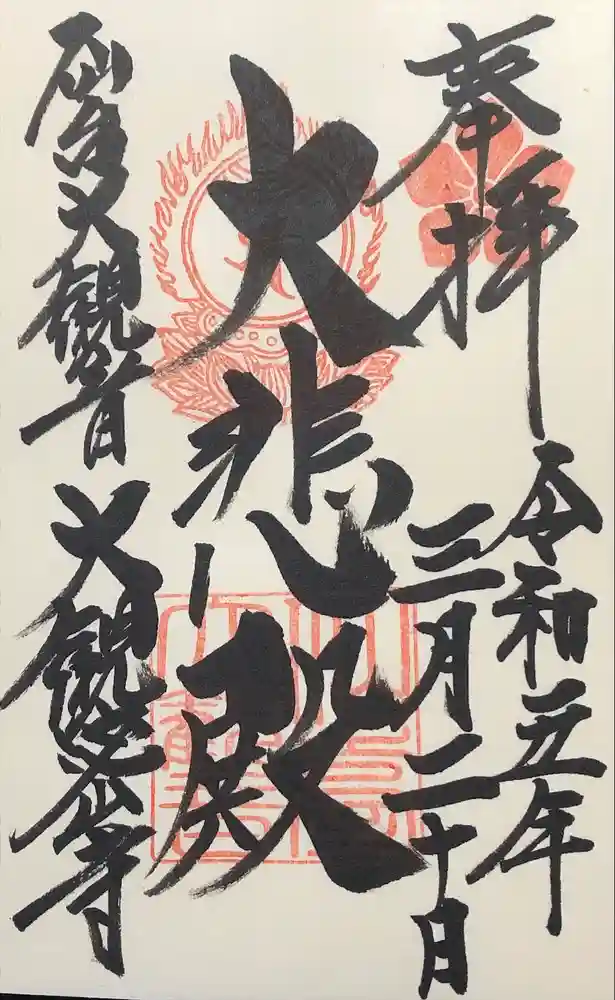 奉拝
令和五年
三月二十日
大悲殿
仙台大観音
大観密寺